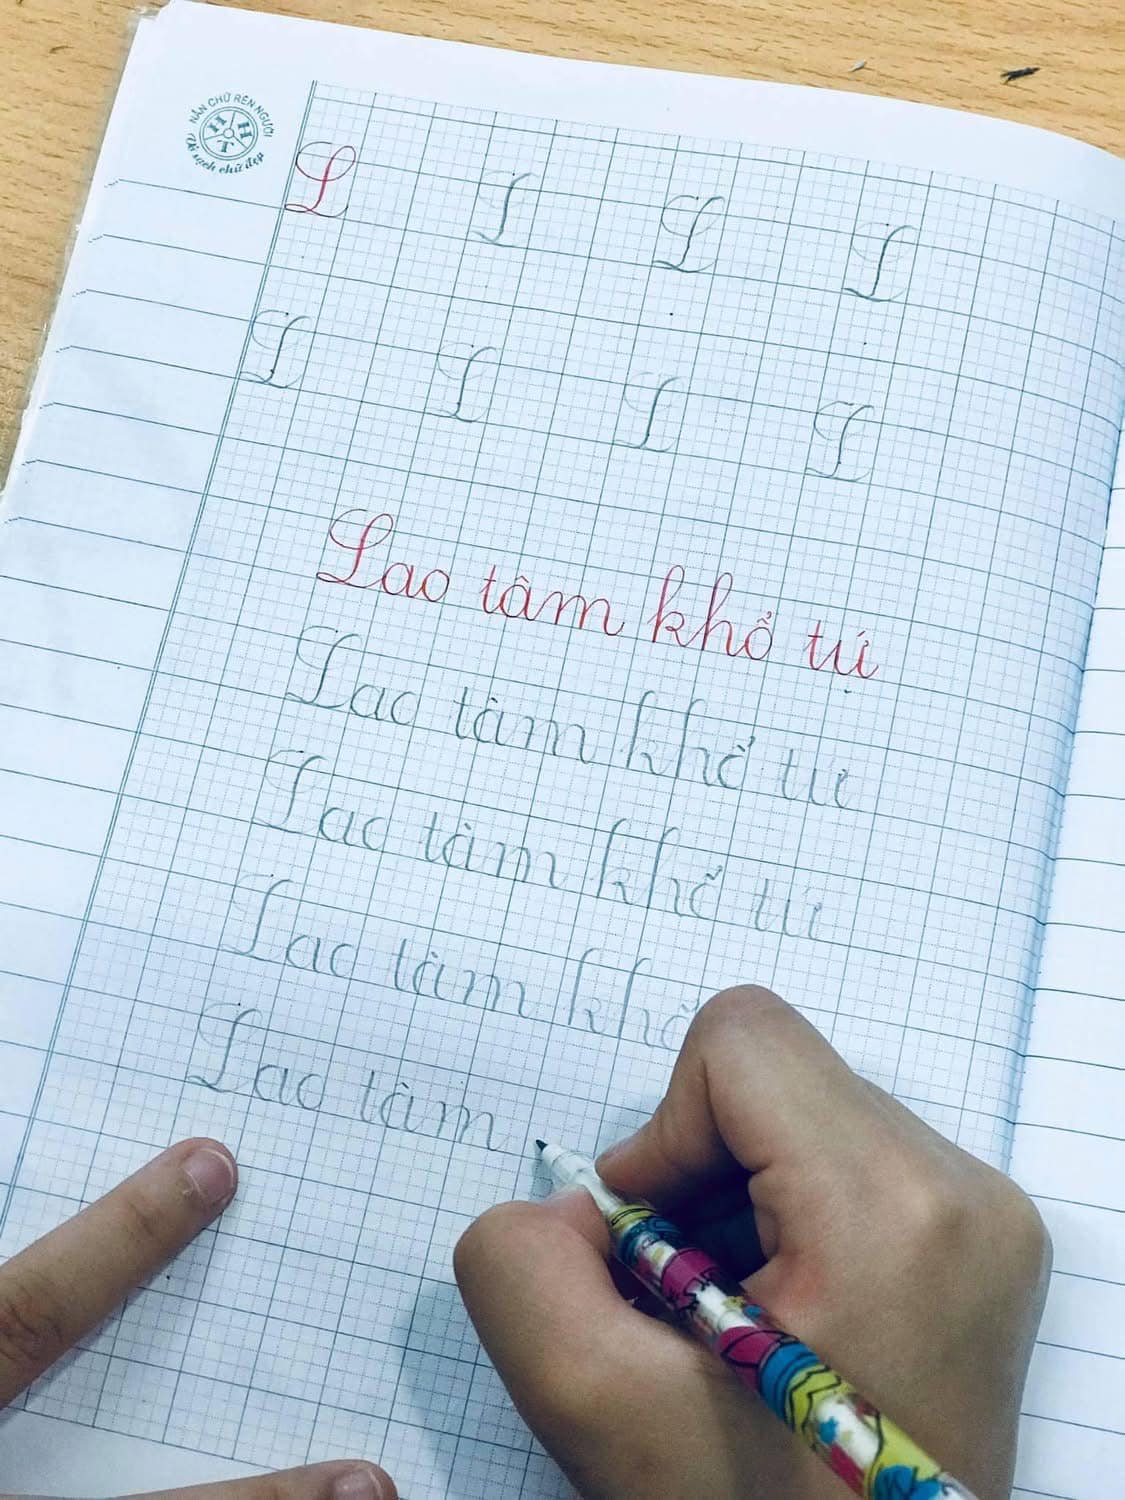 NẮN CHỮ RÈN NGƯỜI
H H T
Vở sạch chữ đẹp
L L L L
L L L L
Lao tâm khổ tứ
Lao tâm khổ tư
Lao tâm khổ tứ
Lao tâm khổ
Lao tâm